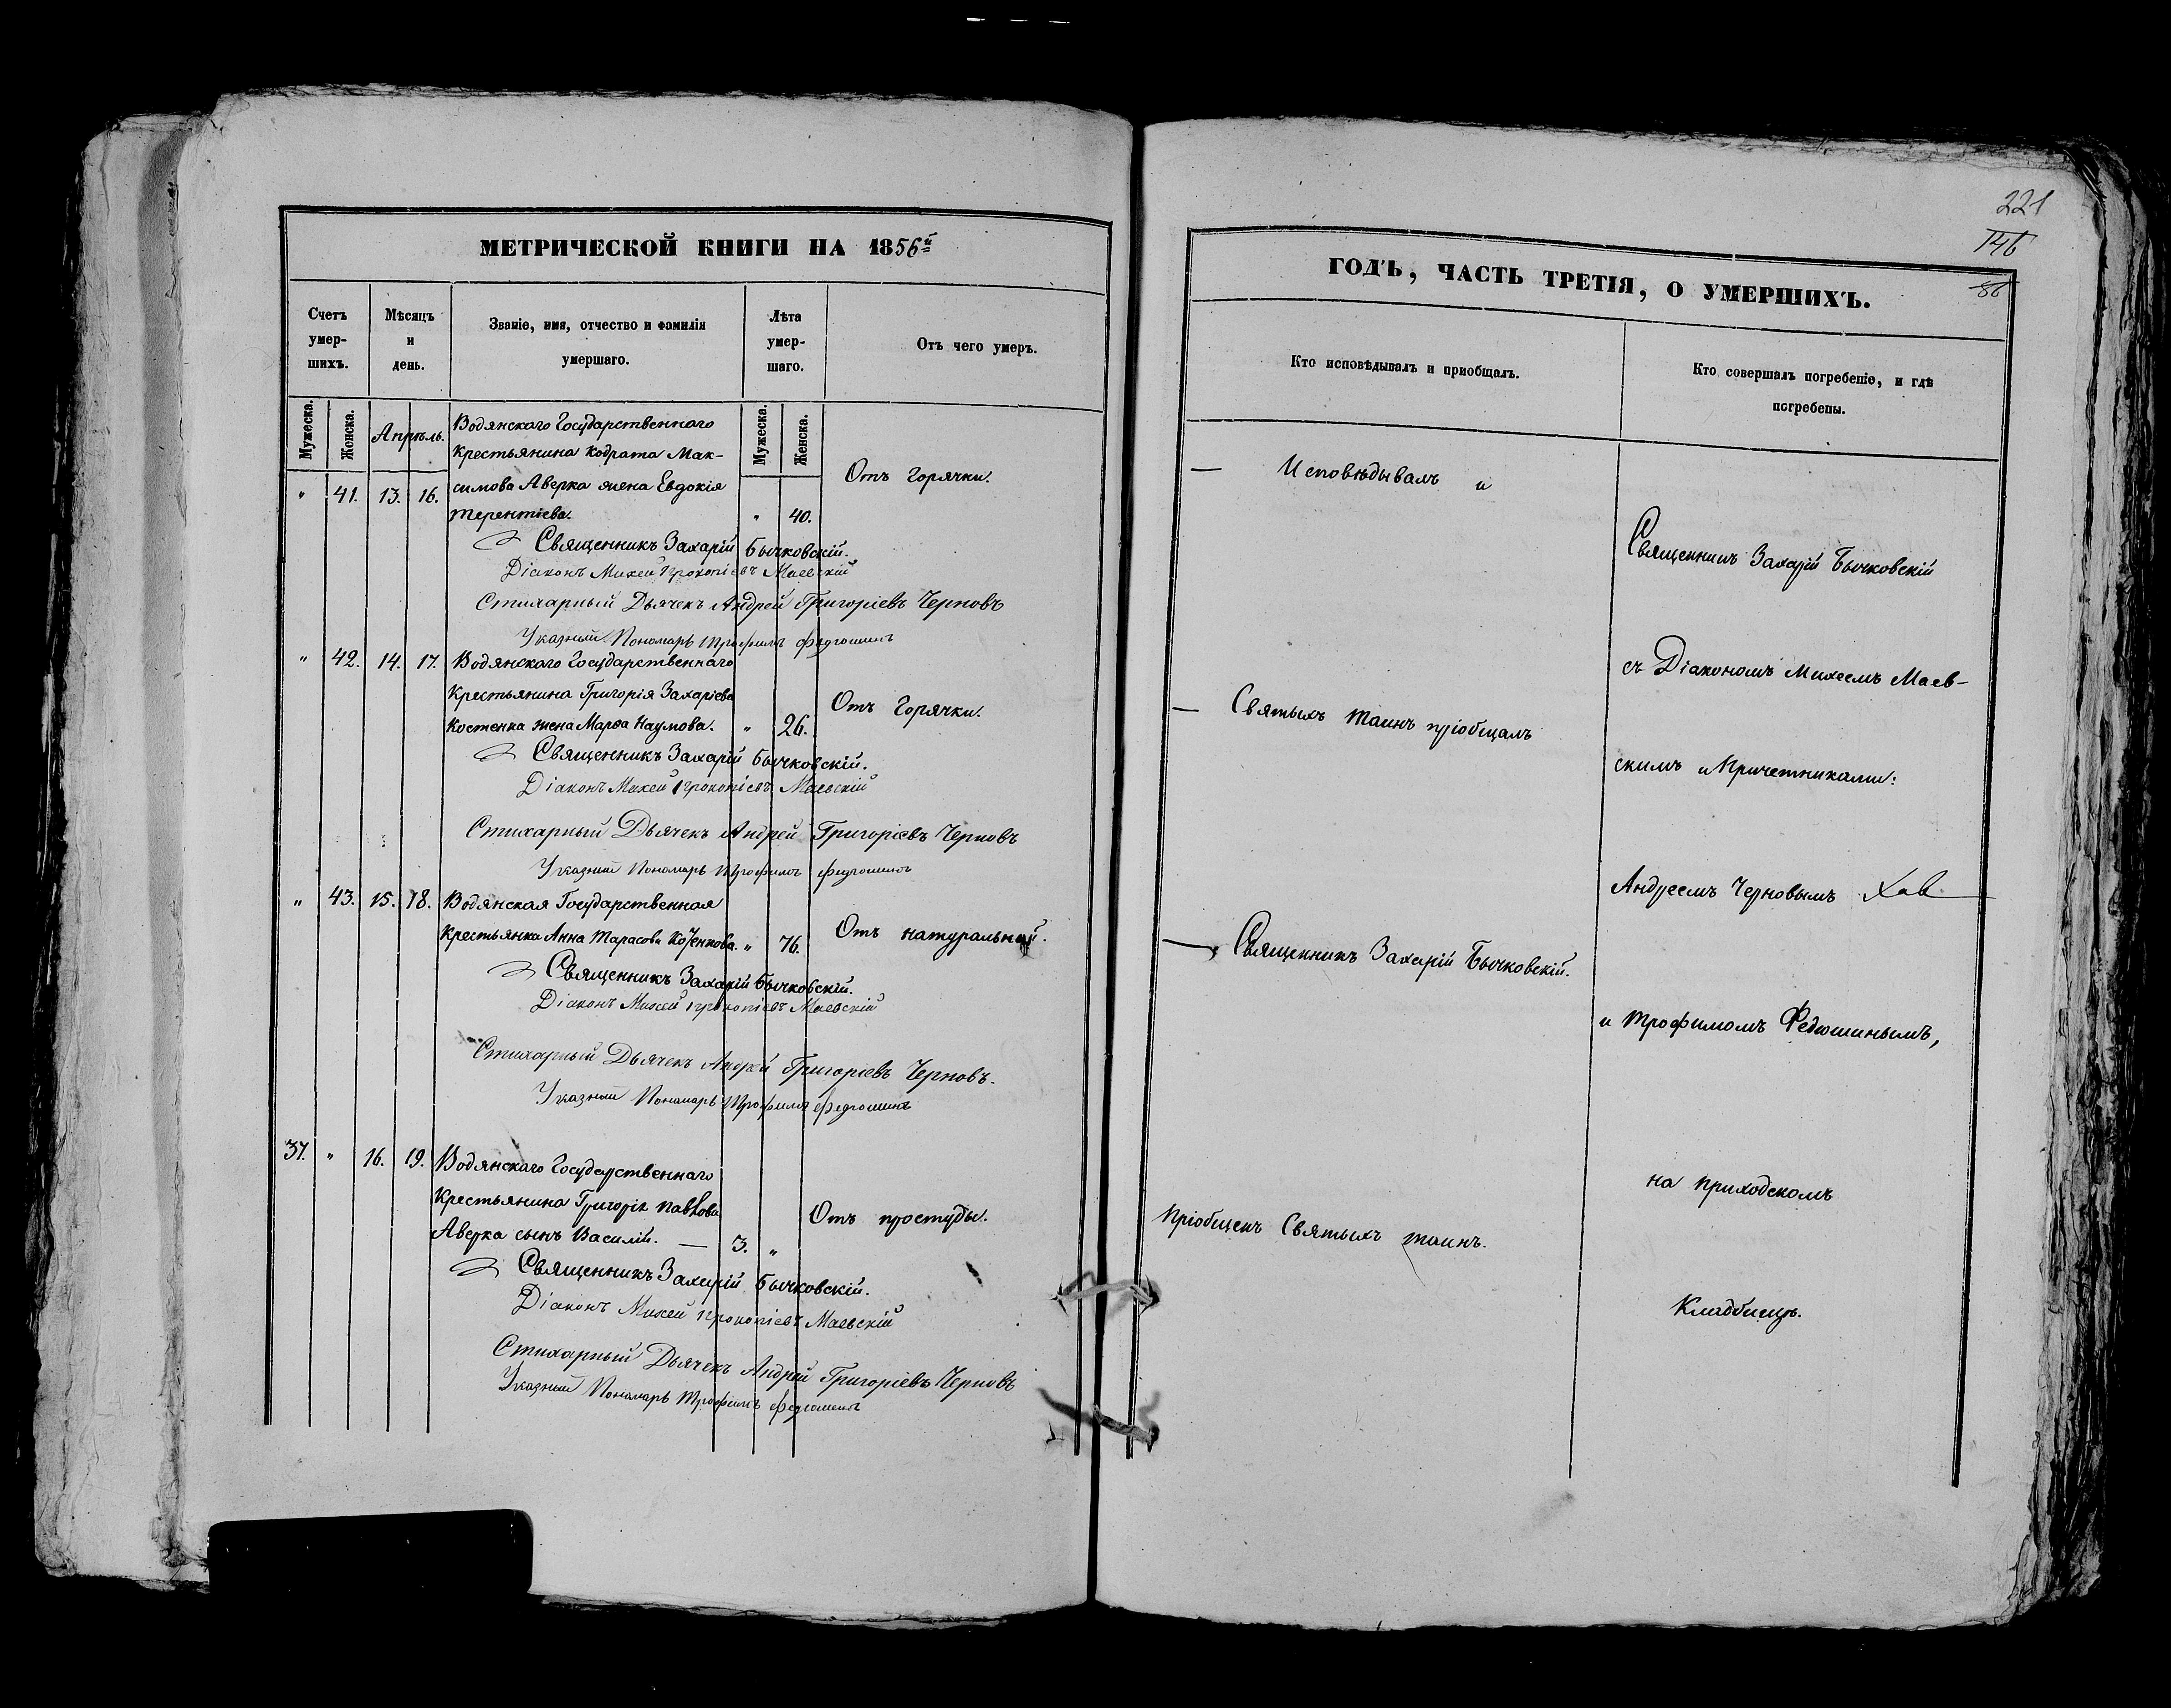 МЕТРИЧЕСКОЙ КНИГИ НА 1856й
Счетъ умер-шихъ.
Мѣсяцъ и день.
Званіе, имя, отчество и фамилія умершаго.
Лѣта умер-шаго.
Отъ чего умеръ.
Мужеска.
Женска.
Апрѣль.
Мужеска.
Женска.
Водянскаго Государственнаго
Крестьянина Кодрата Мак-
" 41. 13. 16. симова Аверка жена Евдокія
Терентіева. " 40. Отъ Горячки.
Священникъ Захарій Бычковскій.
Діаконъ Михей Прокопіевъ Маевскій
Стихарный Дьячекъ Андрей Григоріевъ Черновъ
Указный Пономарь Трофимъ Федюшинъ
" 42. 14. 17. Водянскаго Государственнаго
Крестьянина Григорія Захаріева
Костенка жена Марѳа Наумова. " 26. Отъ Горячки.
Священникъ Захарій Бычковскій.
Діаконъ Михей Прокопіевъ Маевскій
Стихарный Дьячекъ Андрей Григоріевъ Черновъ
Указный Пономарь Трофимъ Федюшинъ
" 43. 15. 18. Водянская Государственная
Крестьянка Анна Тарасова " 76. Отъ натуральной.
Священникъ Захарій Бычковскій.
Діаконъ Михей Прокопіевъ Маевскій
Стихарный Дьячекъ Андрей Григоріевъ Черновъ.
Указный Пономарь Трофимъ Федюшинъ
37. " 16. 19. Водянскаго Государственнаго
Крестьянина Григорія Павлова
Аверка сынъ Василій. — 3. " Отъ простуды.
Священникъ Захарій Бычковскій.
Діаконъ Михей Прокопіевъ Маевскій
Стихарный Дьячекъ Андрей Григоріевъ Черновъ
Указный Пономарь Трофимъ Федюшинъ
221
146
86
ГОДЪ, ЧАСТЬ ТРЕТІЯ, О УМЕРШИХЪ.
Кто исповѣдывалъ и пріобщалъ.
Кто совершалъ погребеніе, и гдѣ
погребены.
— Исповѣдывалъ и
— Святыхъ Таинъ пріобщалъ
— Священникъ Захарій Бычковскій.
Пріобщенъ Святыхъ Таинъ.
Священникъ Захарій Бычковскій
съ Діакономъ Михеемъ Маев-
скимъ и Причетниками:
Андреемъ Черновымъ
и Трофимомъ Федюшинымъ,
на приходскомъ
Кладбищѣ.